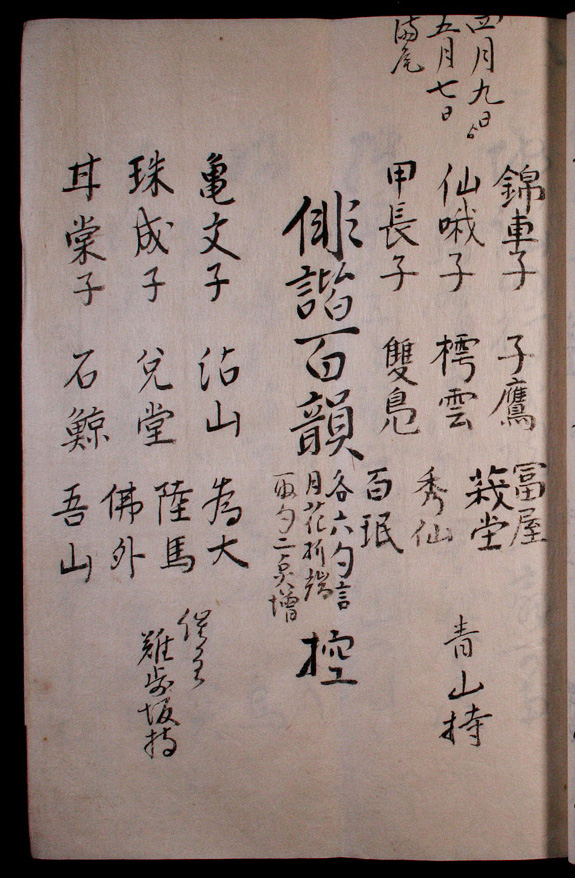 四月九日ゟ
五月七日
満尾
錦車子 子鷹 冨屋
莪堂 青山持
仙哦子 樗雲 秀仙
甲長子 雙鳧 百珉
俳諧百韻
各六句言
月花折端
両句二点増
控
亀文子 沾山 為大
催主
珠成子 兌堂 陸馬
佛外 坂持
耳棠子 石鯨 吾山